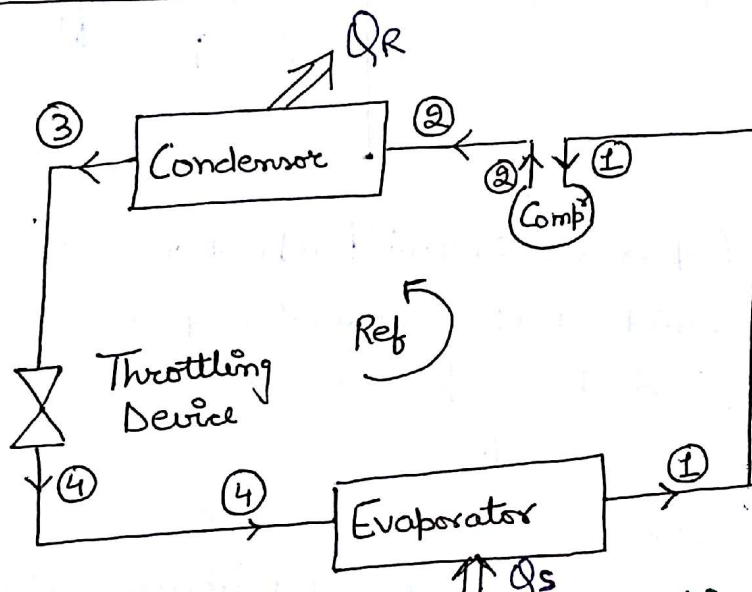 QR
③
Condensor
②
②
①
Comp^r
Ref
Throttling
Device
④
④
Evaporator
①
Qs